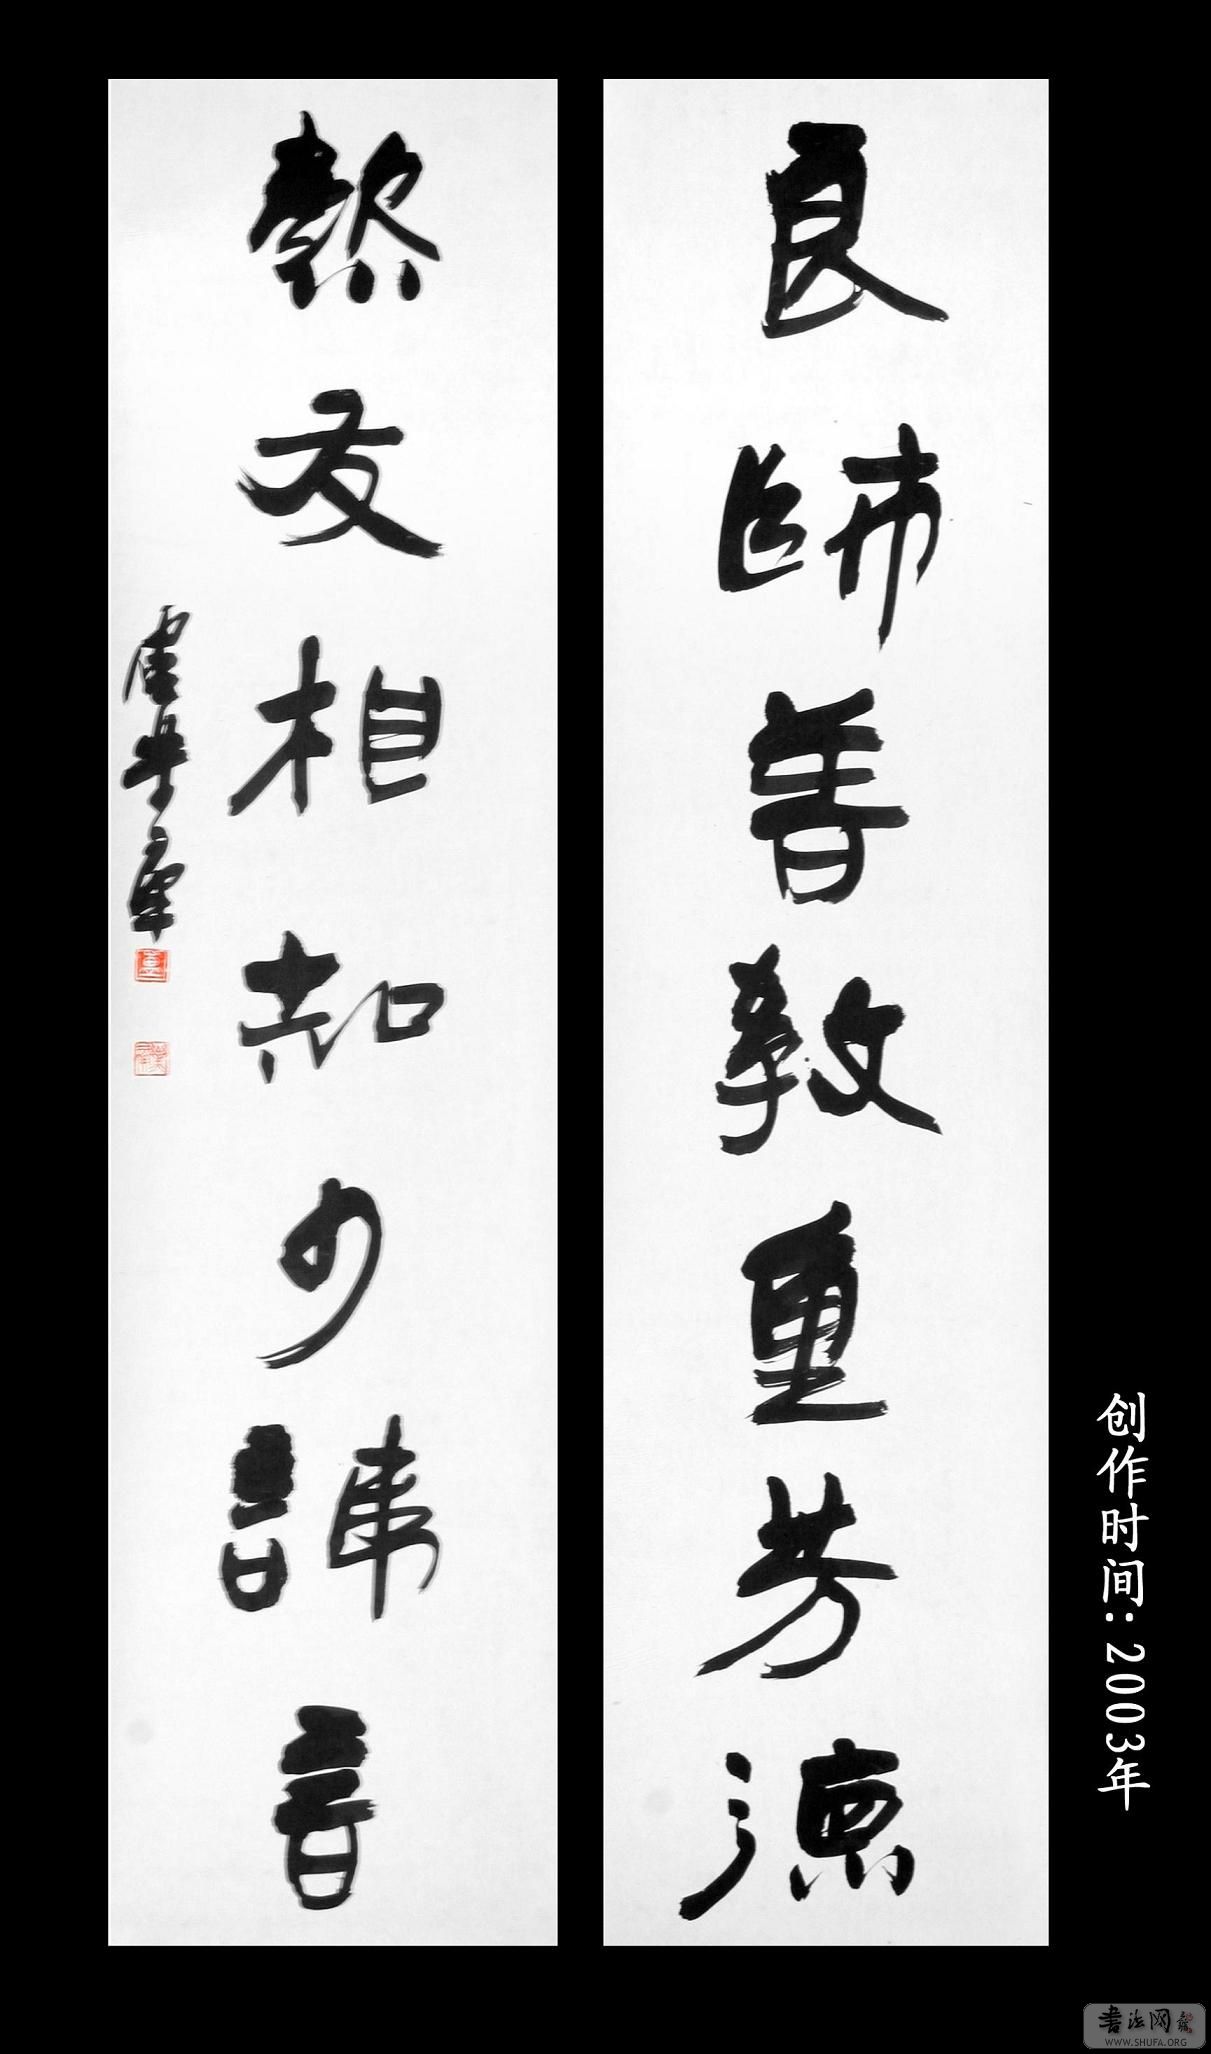 良師善教重芳德
熱友相知少諱言
创作时间:2003年
書法网
WWW.SHUFA.ORG